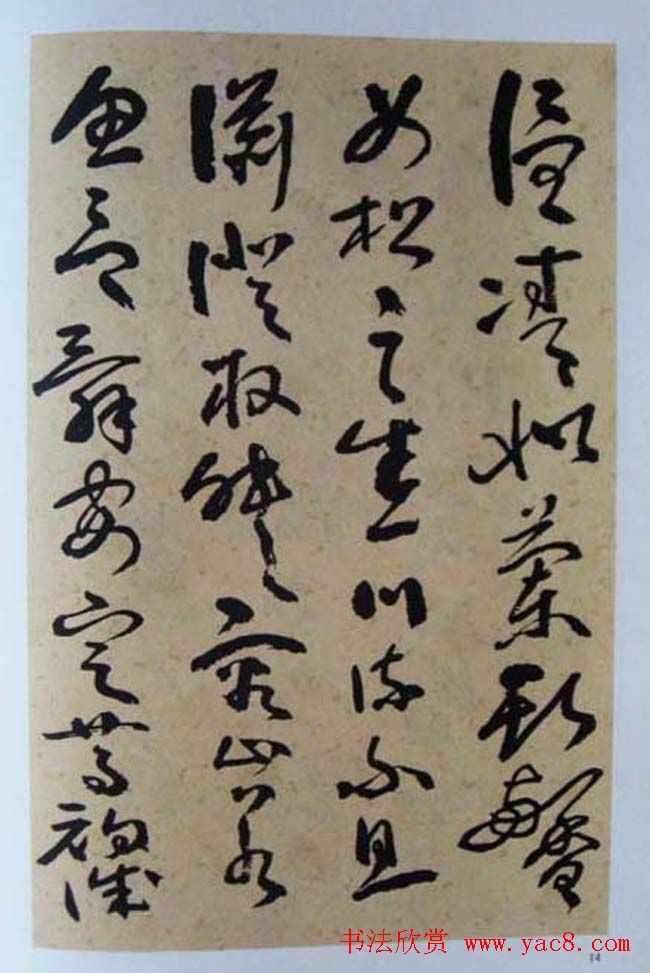 温凊似蘭斯馨
如松之盛川流不息
淵澄取暎容止若
思言辭安定篤初誠
书法欣赏 www.yac8.com
14